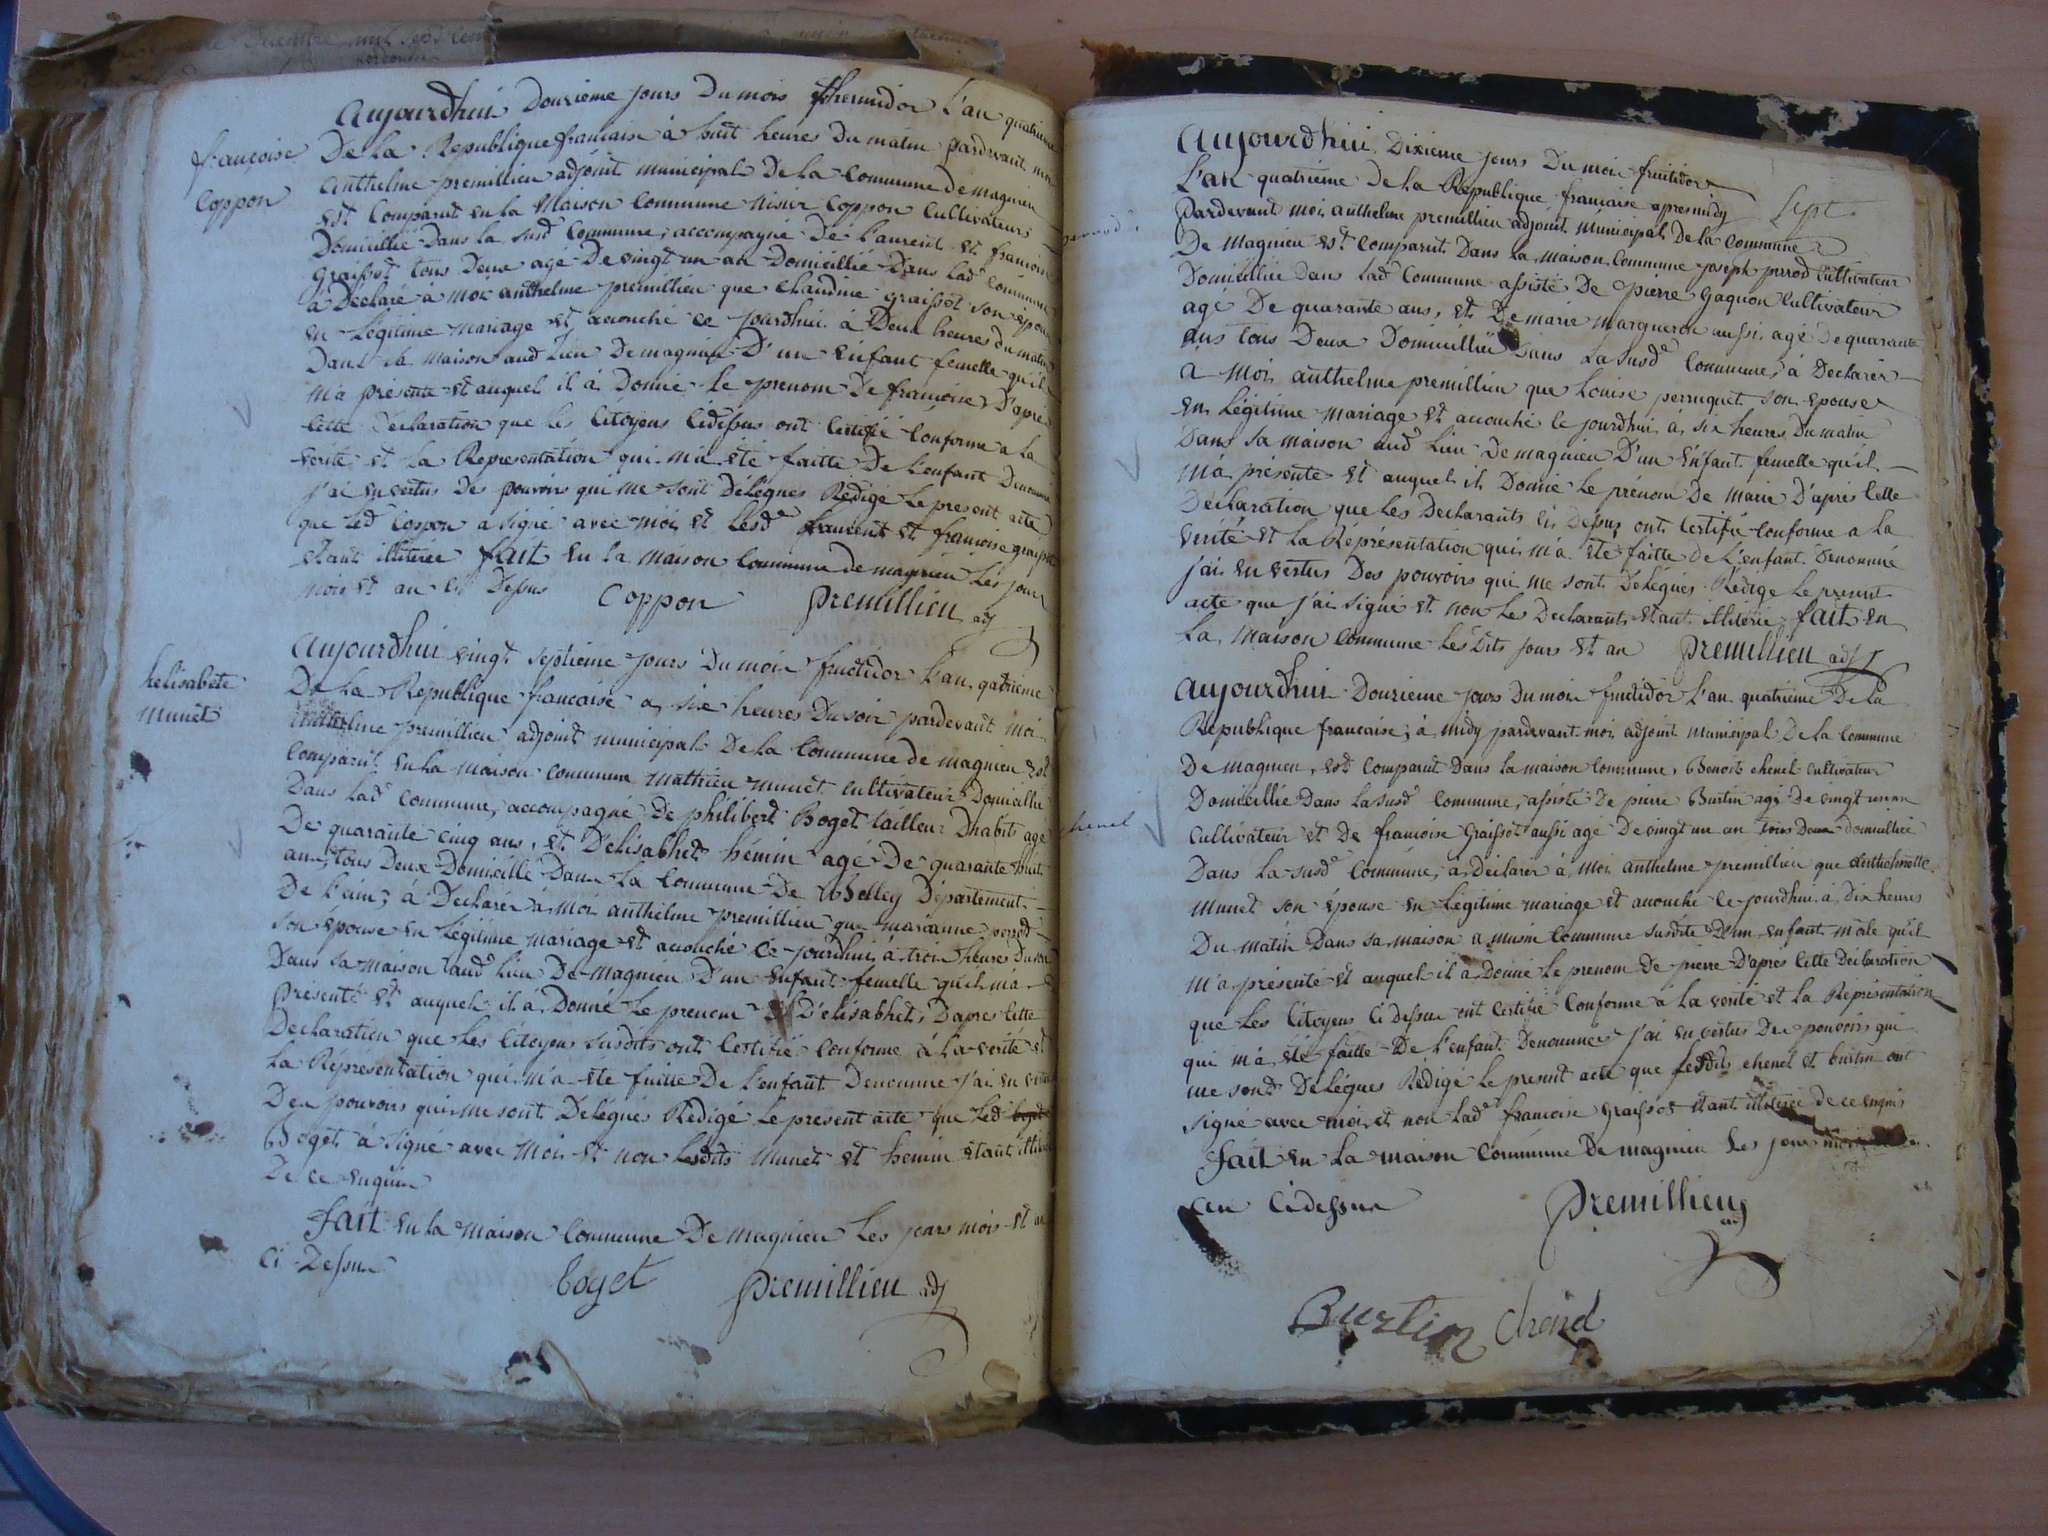 françoise
Coppon
Aujourdhui Douzieme jours Du mois thermidor L'an quatrieme
De la Republique francaise à huit heures Du matin pardevant moi
anthelme premillieu adjoint municipal De la Commune de magnieu
est Comparut en la Maison Commune Coppon Cultivateurs
Domicillié Dans la susd Commune, accompagné De Laurent et francoise
graissot tous Deux agé De vingt un an Domicillié Dans lad commune
à Declaré à moi anthelme premillieu que Claudine graissot son epouse
en Légitime mariage et accouché ce jourdhui à Deux heures du matin
Dans sa maison aud Lieu De magnieu D'un enfant femelle qu'il
m'a présenté et auquel il à Donné le prenom De francoise D'après
Cette Declaration que les Citoyens Cidessus ont Certifié Conforme a la
verité et la Representation qui m'a été faitte De L'enfant Denommé
j'ai en vertus Des pouvoirs qui me sont Délégués Redigé Le present acte
que led Coppon a signé avec moi et lesd Laurent et francoise graissot
étant illiteree fait en la maison Commune de magnieu les jour
mois et an ci Dessus Coppon premillieu adj
helisabete
munet
Aujourdhui vingt septieme jours Du mois fructidor L'an qatrieme
De la Republique francaise a six heures Du soir pardevant moi
anthelme premillieu adjoint municipal De la Commune de magnieu est
Comparut en la maison commune mathieu munet cultivateur Domicillié
Dans lad commune, accompagné De philibert Boget tailleur Dhabits agé
De quarante cinq ans, et D'elisabhet hémin agé De quarante huit
ans, tous Deux Domicillé Dans La Commune De Belley Département
De L'ain, à Declarér à moi anthelme premillieu que marianne perrod
son epouse en Légitime mariage et accouché ce jourdhui à trois heures Du soir
Dans sa maison aud lieu De magnieu D'un enfant femelle qu'il m'a
Présenté et auquel il à Donné Le prenom D'élisabhet, D'apres Cette
Declaration que Les Citoyens susdits ont Certifié Conforme à la verité et
La Réprésentation qui m'a été faitte De L'enfant Denommé j'ai en vertus
Des pouvoirs qui me sont Delégués Redigé Le present acte que led
Boget à signé avec moi et non lesdits munet et hemin etant
De ce enquis
fait en la maison Commune De magnieu Les jours mois et an
Ci Dessus
boget premillieu adj
Aujourdhui Dixieme jours Du mois fruitidor
L'an quatrieme De la Republique francaise apresmidy Sept
Pardevant moi anthelme premillieu adjoint municipal De la Commune
De magnieu est Comparut Dans la maison Commune joseph perrod Cultivateur
Domicillié Dans lad Commune assisté De pierre gagnon Cultivateur
agé De quarante ans, et De marie margueron aussi agé De quarante
ans tous Deux Domicillié Dans La susde Commune, à Declarér
a moi anthelme premillieu que Louise perruquet son epouse
en Légitime mariage et accouché le jourdhui à six heures Du matin
Dans sa maison aud Lieu De magnieu D'un Enfant femelle qu'il
m'a présenté et auquel il Donné Le prénom De marie D'après Cette
Déclaration que Les Declarants ci Dessus ont Certifié Conforme a la
verité et la Réprésentation qui m'a été faitte de L'enfant Denommé
j'ai en vertus Des pouvoirs qui me sont Delégués Rédigé Le present
acte que j'ai signé et non les Declarants etant illiterée fait en
La maison commune les Dits jours et an premillieu adj
chenel
Aujourdhui Douzieme jours Du mois fructidor L'an quatrieme De la
République francaise, à midy pardevant moi adjoint municipal De la Commune
De magnieu, est Comparut Dans la maison Commune, Benoit chenel cultivateur
Domicillié Dans la susd Commune, assisté De pierre Burtin agé De vingt un an
Cultivateur et De francoise Graissot aussi agé De vingt un an tous Deux domicillié
Dans la susde Commune, à Declarer à moi anthelme premillieu que anthelmette
munet son épouse en Légitime mariage et accouché ce jourdhui à Dix heures
Du matin Dans sa maison a musin Commune susdite D'un enfant mâle qu'il
m'a présenté et auquel il à Donné Le prenom De pierre D'apres Cette Déclaration
que Les Citoyens Cidessus ont Certifié Conforme à La verité et la Représentation
qui m'a été faitte De L'enfant Denommé j'ai en vertus Des pouvoirs qui
me sont Délégués Redigé Le present acte que lesdits chenel et burtin ont
signé avec moi et non lad francoise Graissot etant illiterée de ce enquis
fait en La maison Commune De magnieu Les jour mois
an Cidessus premillieu adj
Burtin Chenel